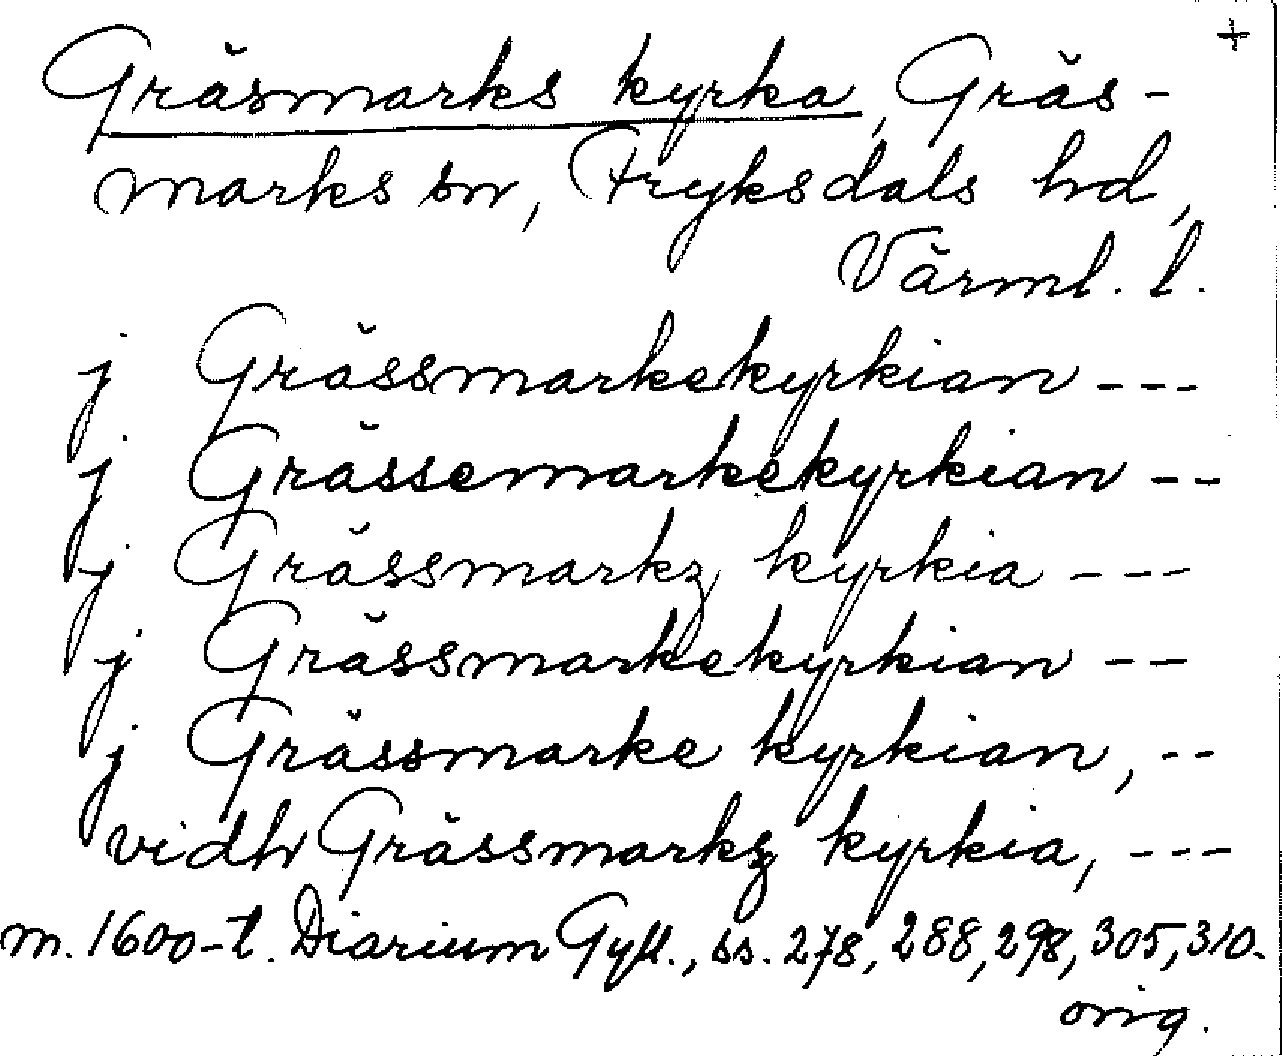 +
Gräsmarks kyrka, Gräs-
marks sn, Fryksdals hd,
Värml. l.
j Grässmarkekyrkian ---
j Grässemarkekyrkian --
j Grässmarkz kyrkia ---
j Grässmarkekyrkian --
j Grässmarke kyrkian, --
vidh Grässmarkz kyrkia, ---
m. 1600-t. Diarium Gyll., ss. 278, 288, 298, 305, 310.
orig.